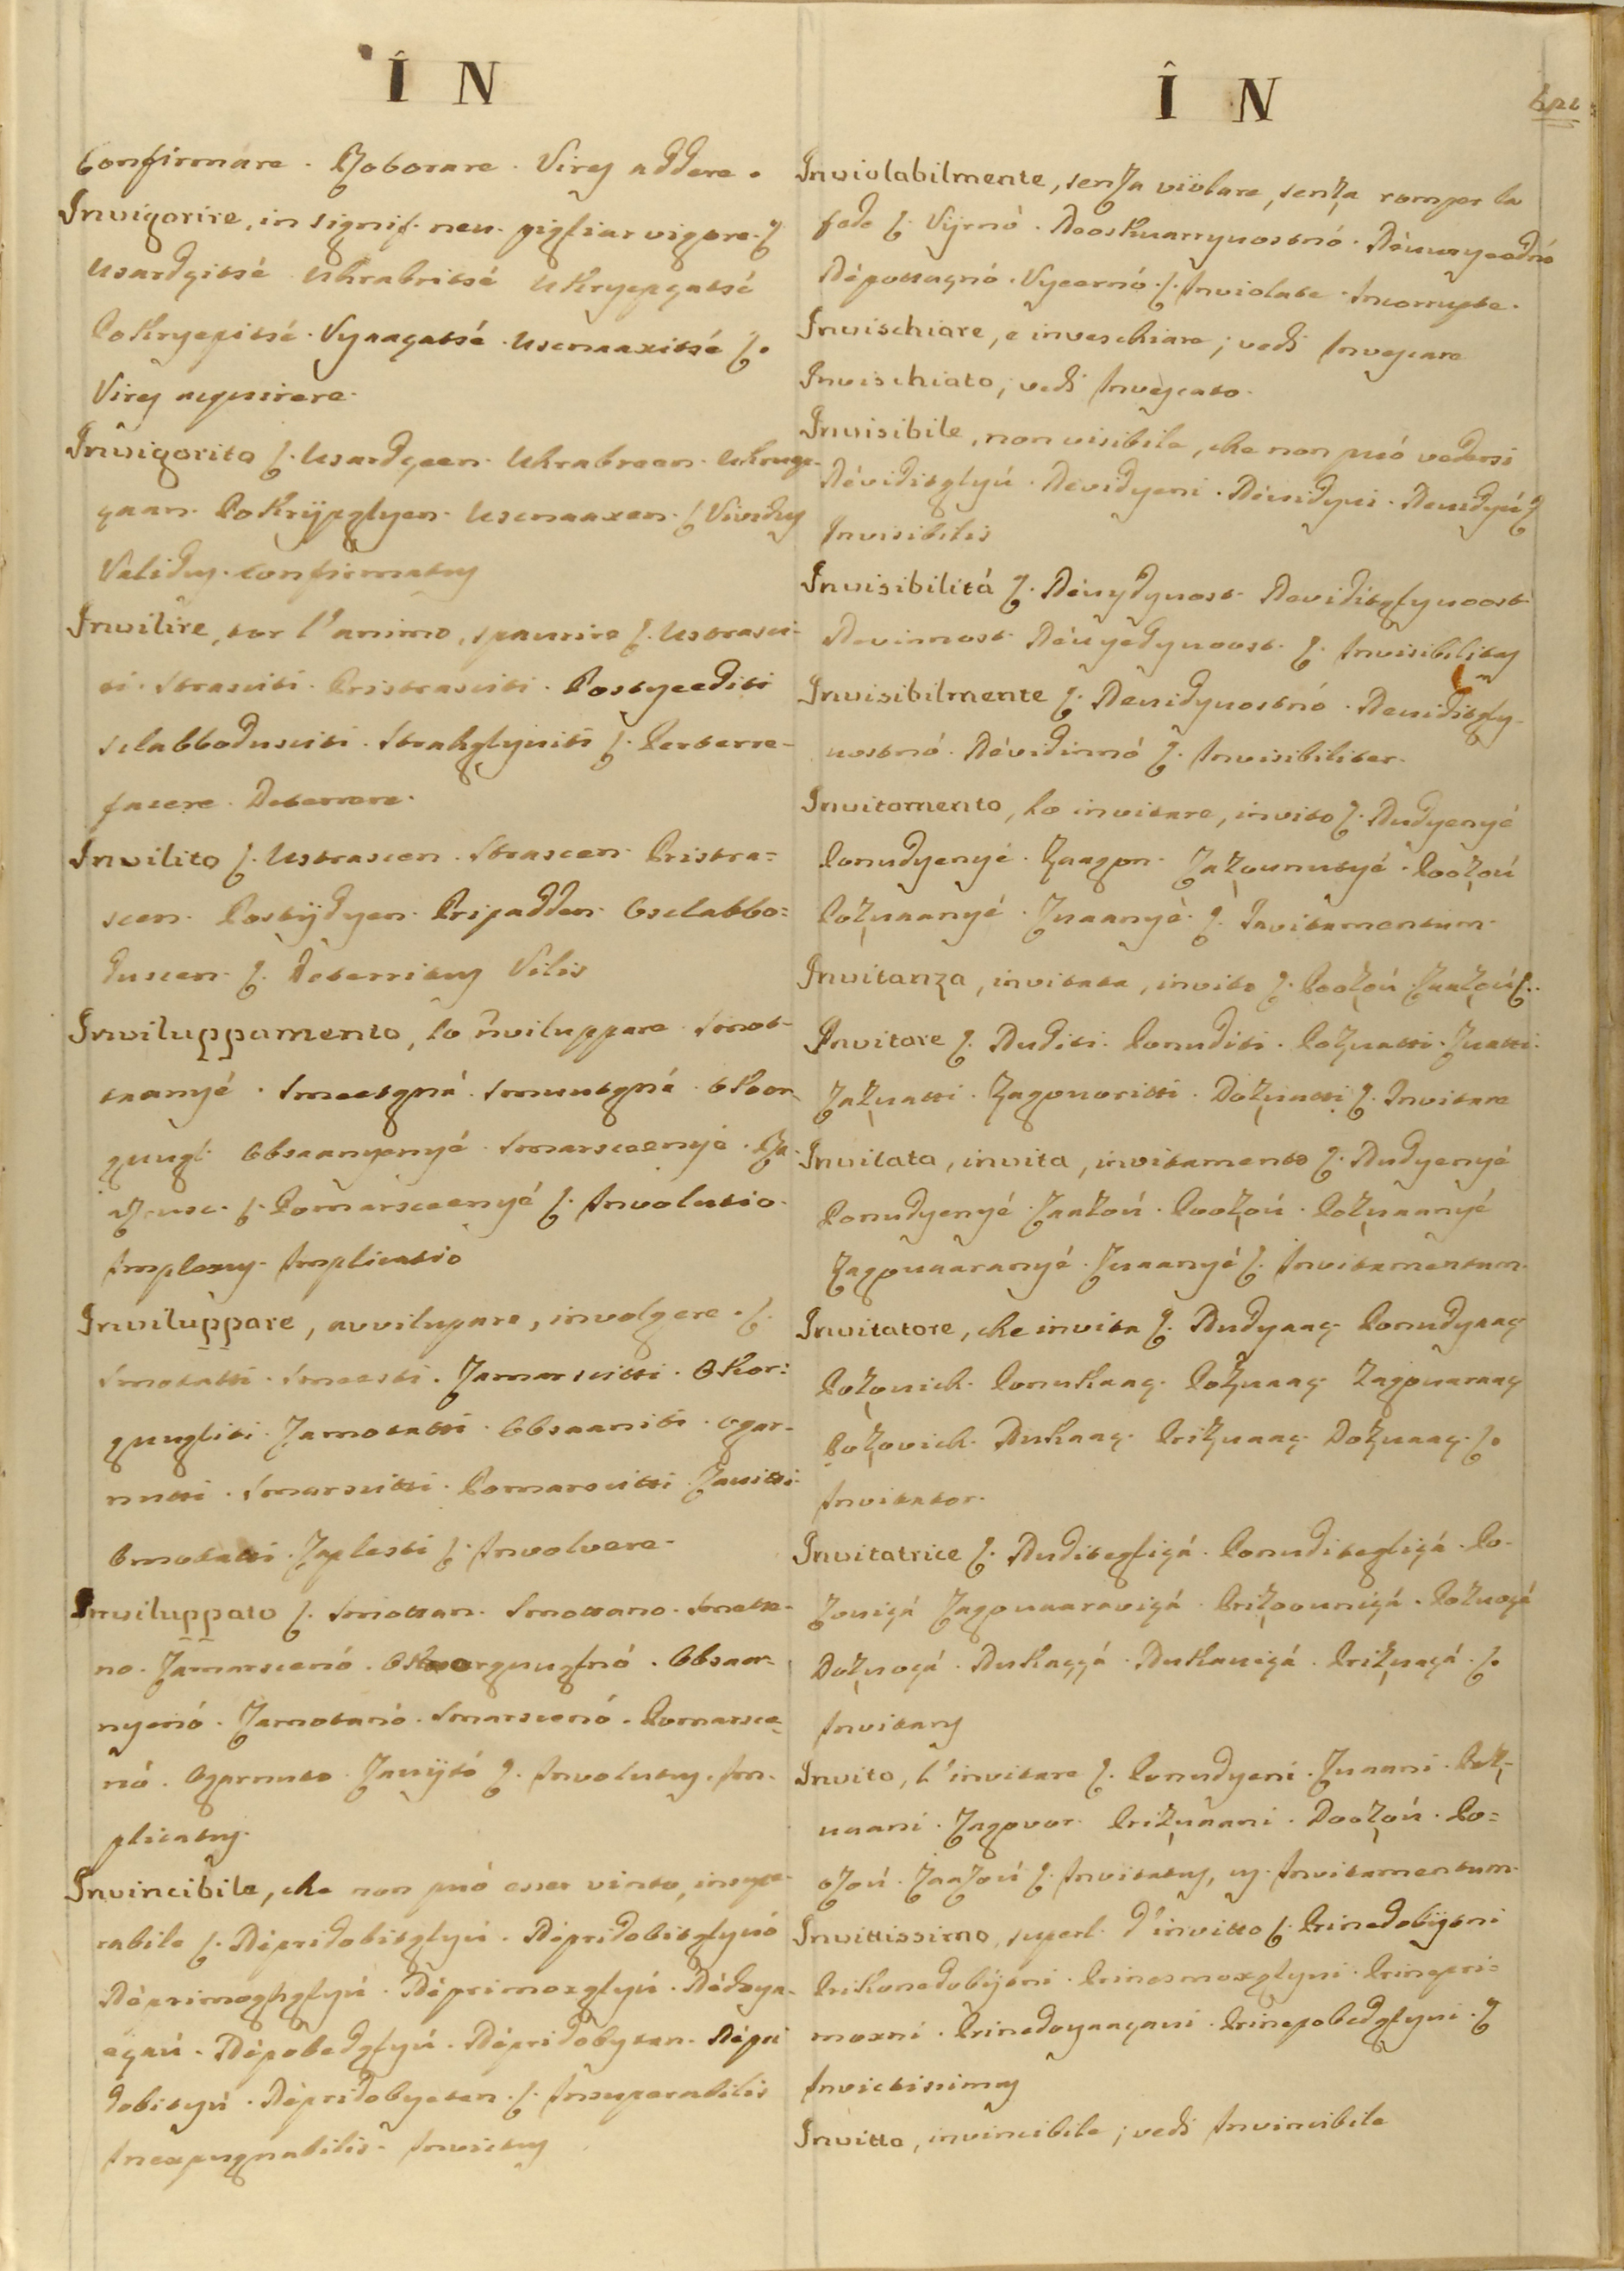 ÎN
Confirmare. Roborare. Vires addere.
Invigorire, in signif. neu. pigliar vigore. ſ.
Usardgitsé Uhrabritsé Ukryepgatsé
Pokryepitsé. Vyaaçatsé. Usenaaxitsé ſ.
Vires acquirere.
Invigorito ſ. Usardgeen. Uhrabreen.
çaan. Pokrÿpglyen. Usenaaxen. ſ. Vividus
Validus. Confirmatus
Invilire, tor l'animo, spaurire ſ. Ustrasci-
ti. Strasciti. Pristrasciti. Postyediti
sclabbodusciti. Strahglyuiti ſ. Perterre-
facere. Deterrere.
Invilito ſ. Ustrascen. Strascen. Pristra=
scen. Postÿdyen. Pripadden. Osclabbo=
duscen. ſ. Deterritus Vilis
Inviluppamento, lo inviluppare. Smot-
taanyé. Smeetgná. Smuutgná. Okoor-
gnugl. Obsaanyenyé. Smarsceenyé. Ra
zrusc. ſ. Pomarsceenyé ſ. Involutio.
Implexus. Implicatio
Inviluppare, avvilupare, involgere. ſ.
Smotatti. Smeesti. Zamarscitti. Okor=
gnugliti. Zamotatti. Obsaaniti. Ogar-
nutti. Smarscitti. Pomarscitti. Zavitti.
Omotatti. Zaplesti ſ. Involvere.
Inviluppato ſ. Smottan. Smottano. Smette-
no. Zamarscenó. Obsaa-
nyenó. Zamotanó. Smarscenó. Pomarsce-
nó. Ogarnuto. Zavÿtó ſ. Involutus. Im-
plicatus.
Invincibile, che non può esser vinto, insupe-
rabile ſ. Népridobitglyú. Népridobitglynó
Néprimoghglyú. Néprimoxglyú. Nédoya-
açaú. Népobedglyú. Népridobytan. Népri
dobityú. Népridobyetan. ſ. Insuperabilis
Inexpugnabilis. Invictus
ÎN
Inviolabilmente, senza violare, senza romper la
fede ſ. Vjrnó. Neoskuarnyuostnó.
Népottagnó. Vyeernó. ſ. Inviolate. Incorrupte.
Invischiare, e inveschiare; vedi Invescare
Invischiato; vedi Invescato.
Invisibile, non visibile, che non può vedersi
Néviditglyú. Nevidyeni. Neuidyui. Neuidyú ſ
Invisibilis
Invisibilitá ſ. Néuydyuost. Neviditglyuoost.
Nevinnost. Néuyedyuoost. ſ. Invisibilitas
Invisibilmente ſ. Neuidyuostnó. Neuiditgly-
uostnó. Névidinnó ſ. Invisibiliter.
Invitamento, lo invitare, invito ſ. Nudyenyé
Ponudyenyé. Zaagon. Zazounutyé. Poozoú
Pozuaanyé. Zuaanyé. ſ. Invitamentum.
Invitanza, invitata, invito ſ. Poozoú. Zaazoú ſ.
Invitare ſ. Nuditi. Ponuditi. Pozuatti. Zuatti.
Zazuatti. Zagouoritti. Dozuatti ſ. Invitare
Invitata, invita, invitamento ſ. Nudyenyé
Ponudyenyé. Zaazoú. Poozoú. Pozuaanyé
Zagouaaranyé. Zuaanyé ſ. Invitamentum.
Invitatore, che invita ſ. Nudyaaç. Ponudyaaç
Pozouich. Ponukaaç. Pozuaaç. Zagouaraaç
Pozovich. Nukaaç. Prizuaaç. Dozuaaç. ſ.
Invitator.
Invitatrice ſ. Nuditegliçá. Ponuditegliçá. Po-
zouiçá Zagouaaraviçá. Prizoouniçá. Pozuoçá
Dozuoçá. Nukaççá. Nukauiçá. Prizuaçá. ſ.
Invitans
Invito, l'invitare ſ. Ponudyeni. Zuaani. Poz-
uaani. Zagovor. Prizuaani. Doozoú. Po=
ozoú. Zaazoú ſ. Invitatus, us. Invitamentum.
Invittissimo, superl. d'invitto ſ. Prinedobÿtni
Prikonedobÿtni. Prinesmoxglyni. Prinepri=
moxni. Prinedoyaaçaui. Prinepobedglyni. ſ
Invictissimus
Invitto, invincibile; vedi Invincibile